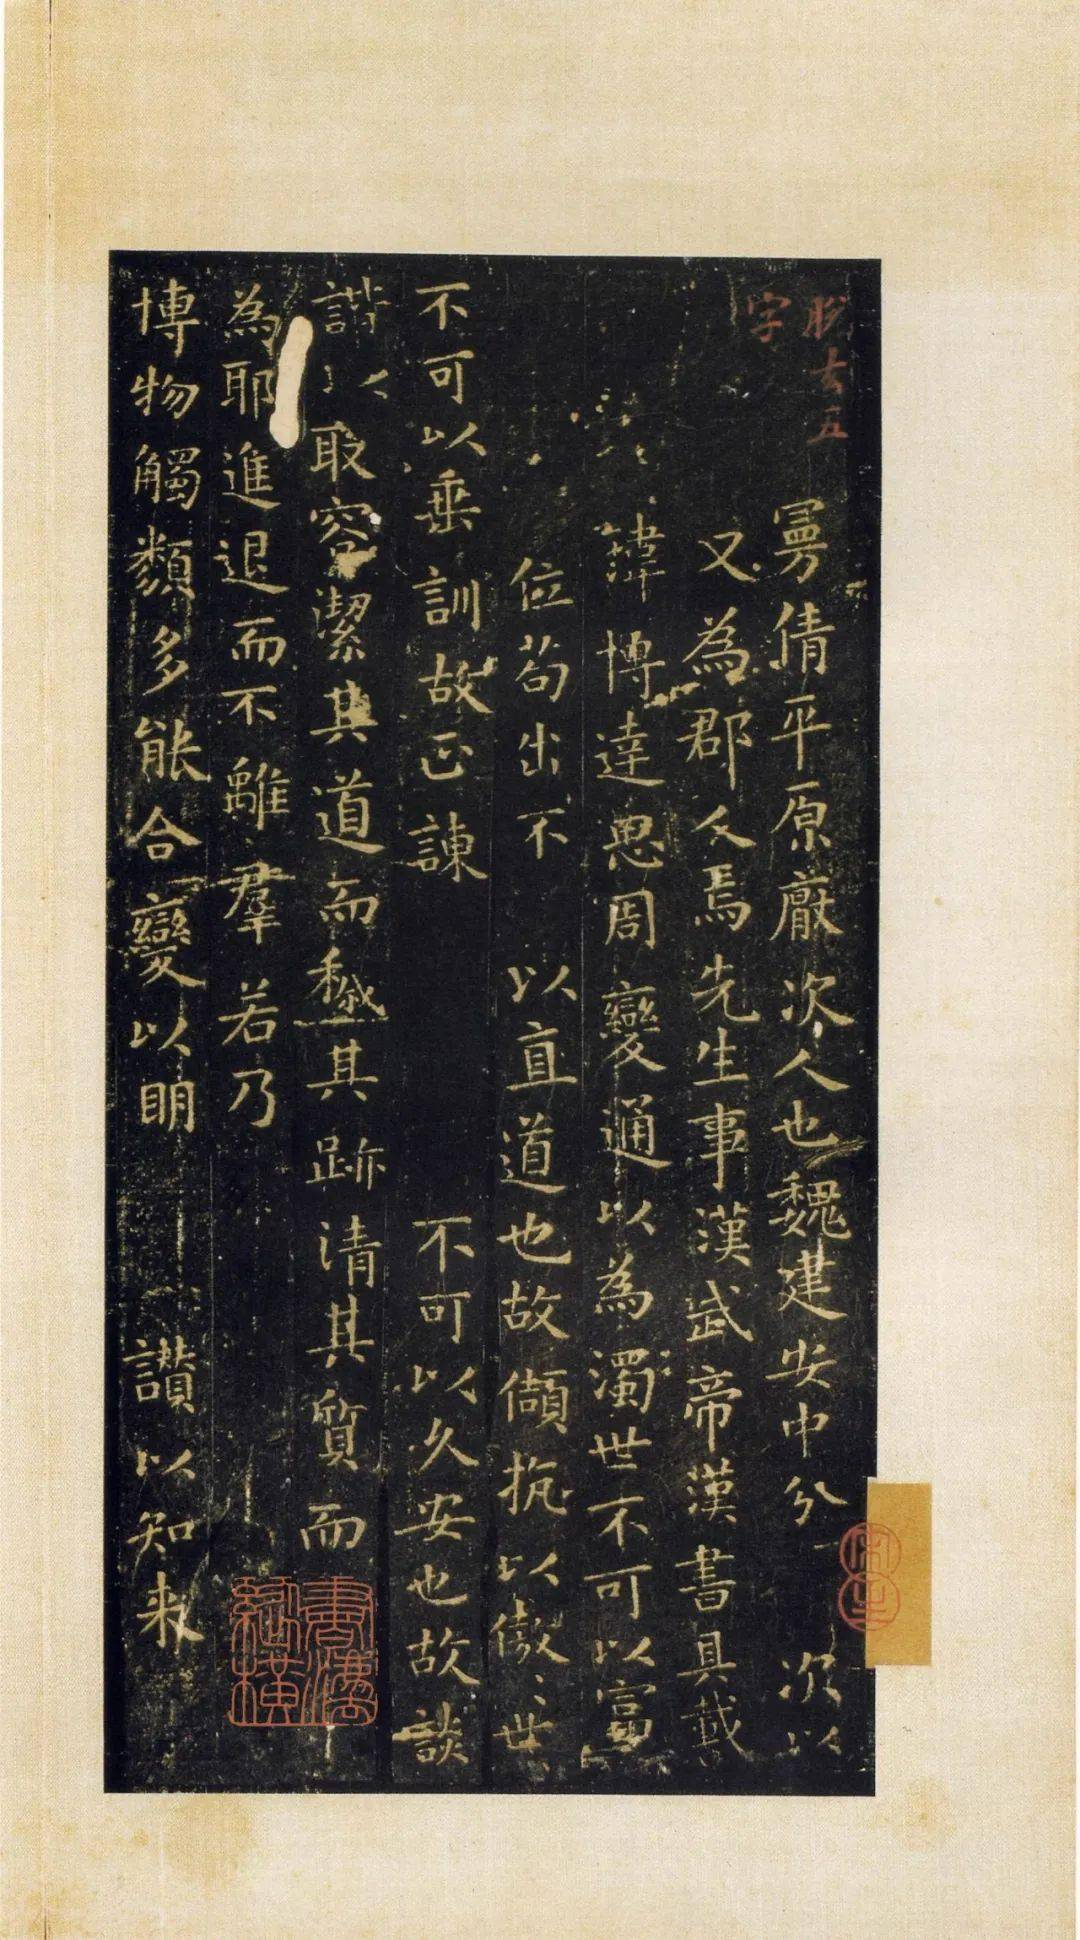 脱去五
字
曼倩平原厭次人也魏建安中分 次以
又為郡人焉先生事漢武帝漢書具載
瑋博達思周變通以為濁世不可以富
位苟出不 以直道也故傾抗以傲世
不可以垂訓故正諫 不可以久安也故談
諧以取容潔其道而穢其跡清其質而
為耶進退而不離羣若乃
博物觸類多能合變以明 讃以知来
書溝
縱橫